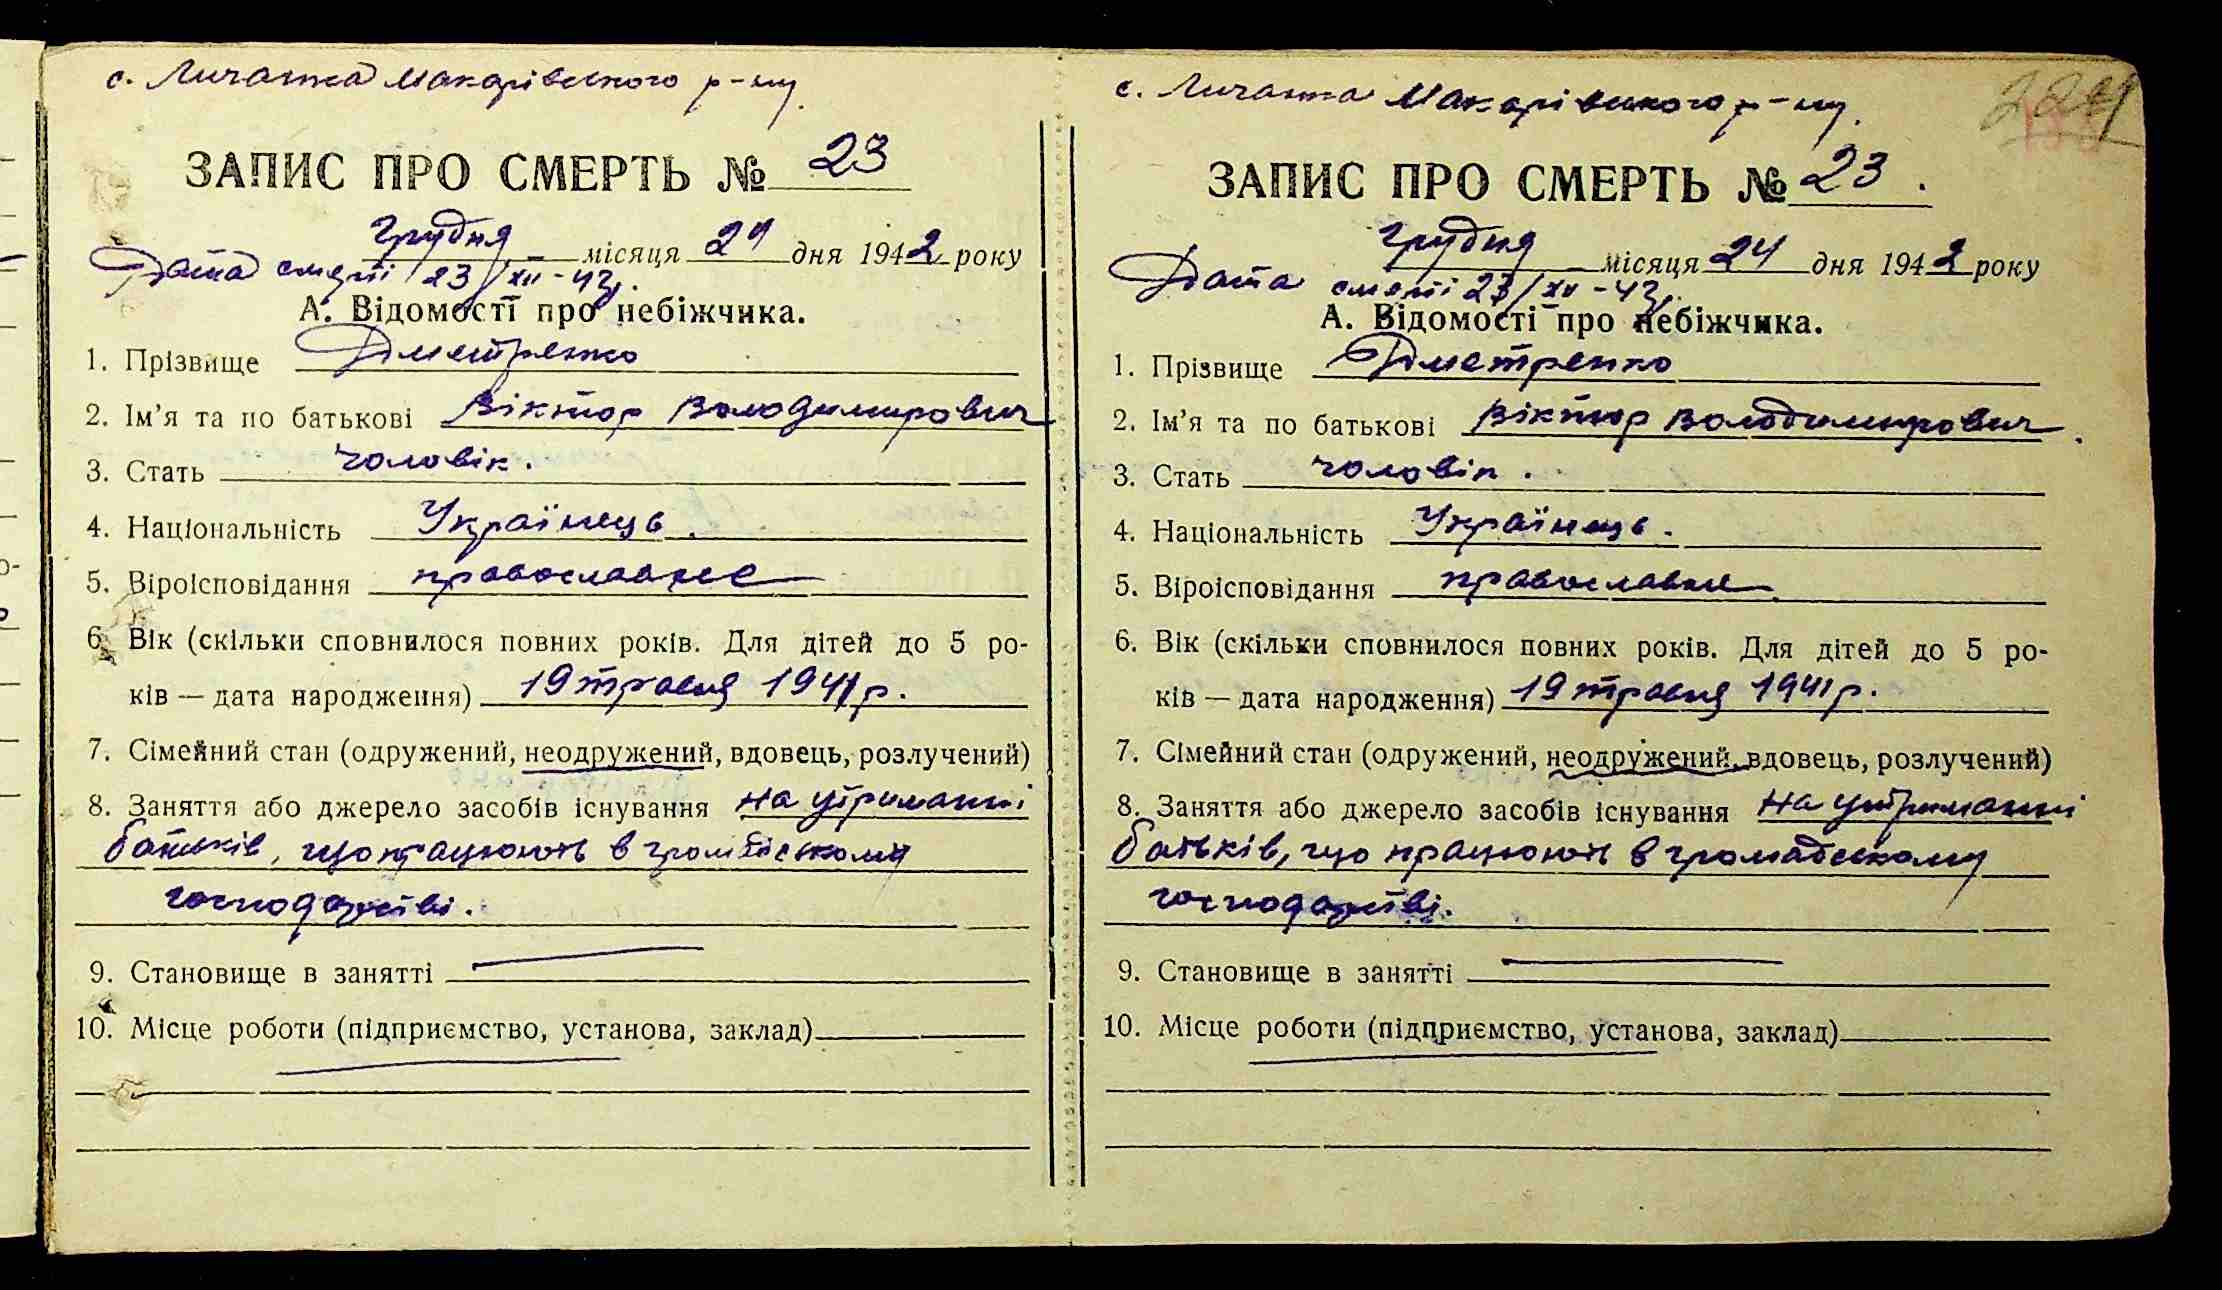 с. Личанка Макарівського р-ну.
ЗАПИС ПРО СМЕРТЬ № 23
грудня місяця 24 дня 1942 року
Дата смерті 23/XII-42р.
А. Відомості про небіжчика.
1. Прізвище Дметренко
2. Ім'я та по батькові Віктор Володимирович
3. Стать чоловік.
4. Національність Українець.
5. Віроісповідання православне
6. Вік (скільки сповнилося повних років. Для дітей до 5 ро-
ків — дата народження) 19 травня 1941 р.
7. Сімейний стан (одружений, неодружений, вдовець, розлучений)
8. Заняття або джерело засобів існування на утриманні
батьків, що працюють в громадському
господарстві.
9. Становище в занятті
10. Місце роботи (підприємство, установа, заклад)
с. Личанка Макарівського р-ну.
ЗАПИС ПРО СМЕРТЬ № 23.
грудня місяця 24 дня 1942 року
Дата смерті 23/XII-42р.
А. Відомості про небіжчика.
1. Прізвище Дметренко
2. Ім'я та по батькові Віктор Володимирович.
3. Стать чоловік.
4. Національність Українець.
5. Віроісповідання православне
6. Вік (скільки сповнилося повних років. Для дітей до 5 ро-
ків — дата народження) 19 травня 1941 р.
7. Сімейний стан (одружений, неодружений, вдовець, розлучений)
8. Заняття або джерело засобів існування на утриманні
батьків, що працюють в громадському
господарстві.
9. Становище в занятті
10. Місце роботи (підприємство, установа, заклад)